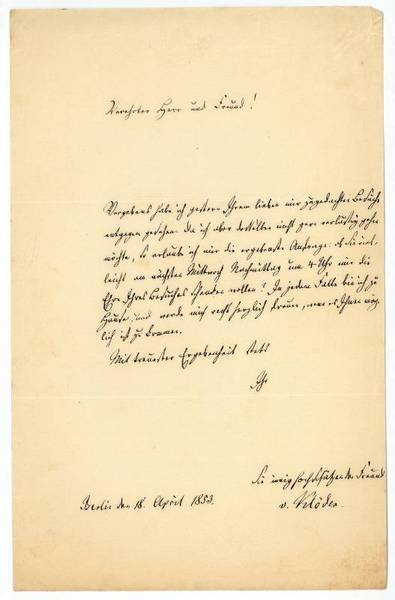 Verehrter Herr und Freund!
Vergebens habe ich gestern Ihrem lieben mir zugedachten Besuche
entgegen gesehen. Da ich aber desselben nicht gern verlustig gehen
möchte, so erlaube ich mir die ergebenste Anfrage: ob Sie viel-
leicht am nächsten Mittwoch Nachmittag um 4 Uhr mir die
Ehre Ihres Besuches schenken wollen? In jedem Falle bin ich zu
Hause, und werde mich recht herzlich freuen, wenn es Ihnen mög-
lich ist zu kommen.
Mit treuester Ergebenheit stets
Ihr
Sie innig hochschätzender Freund
Berlin den 18. April 1853.
v.